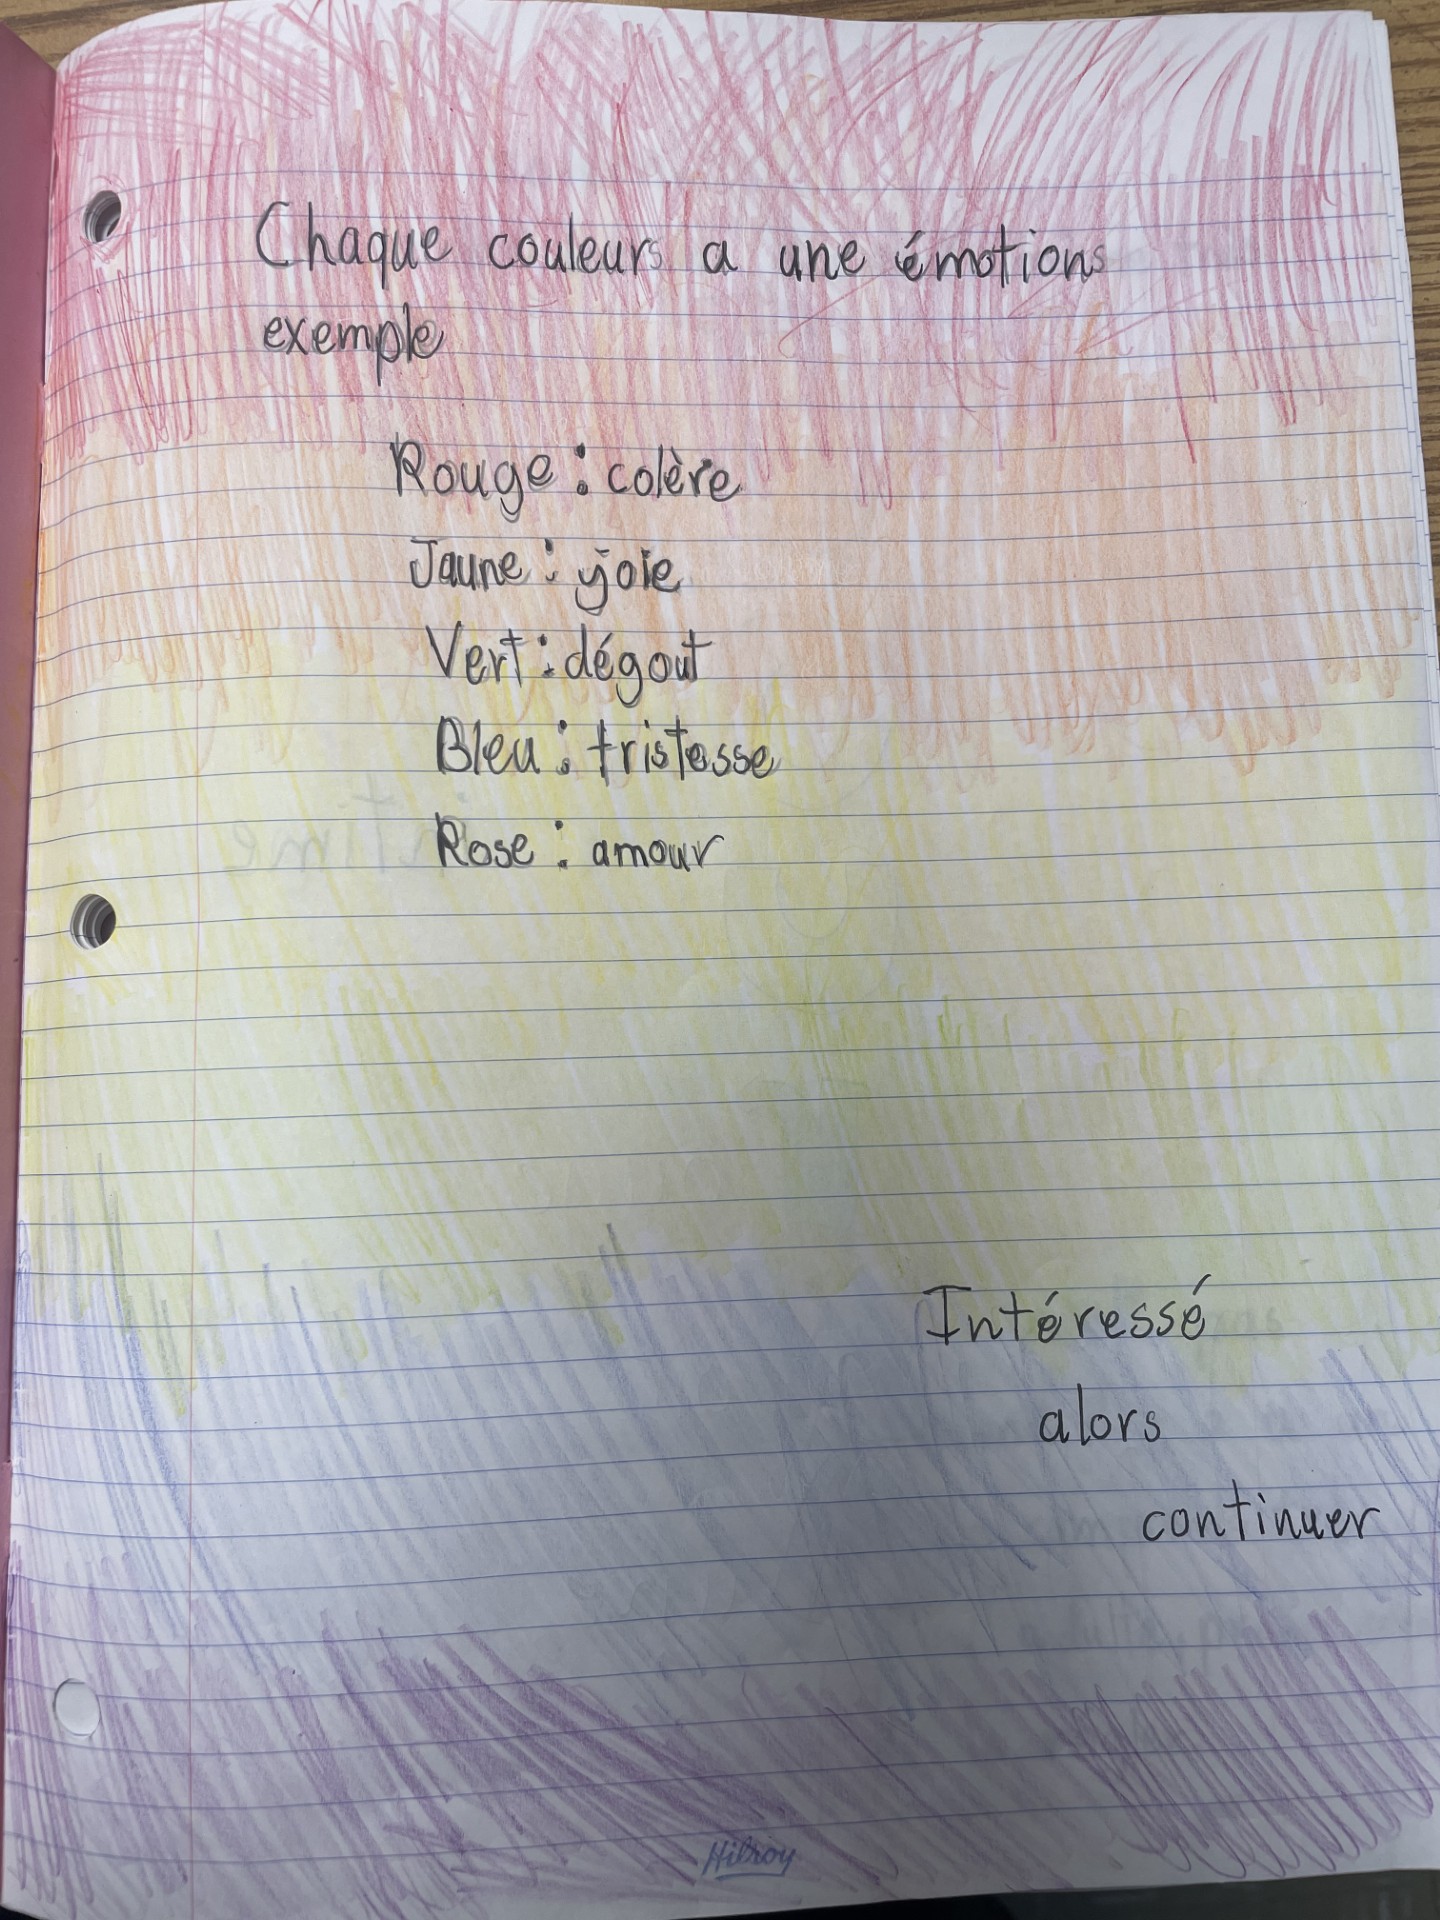 Chaque couleurs a une émotions
exemple
Rouge : colère
Jaune : joie
Vert : dégout
Bleu : tristesse
Rose : amour
Intéressé
alors
continuer
Hilroy